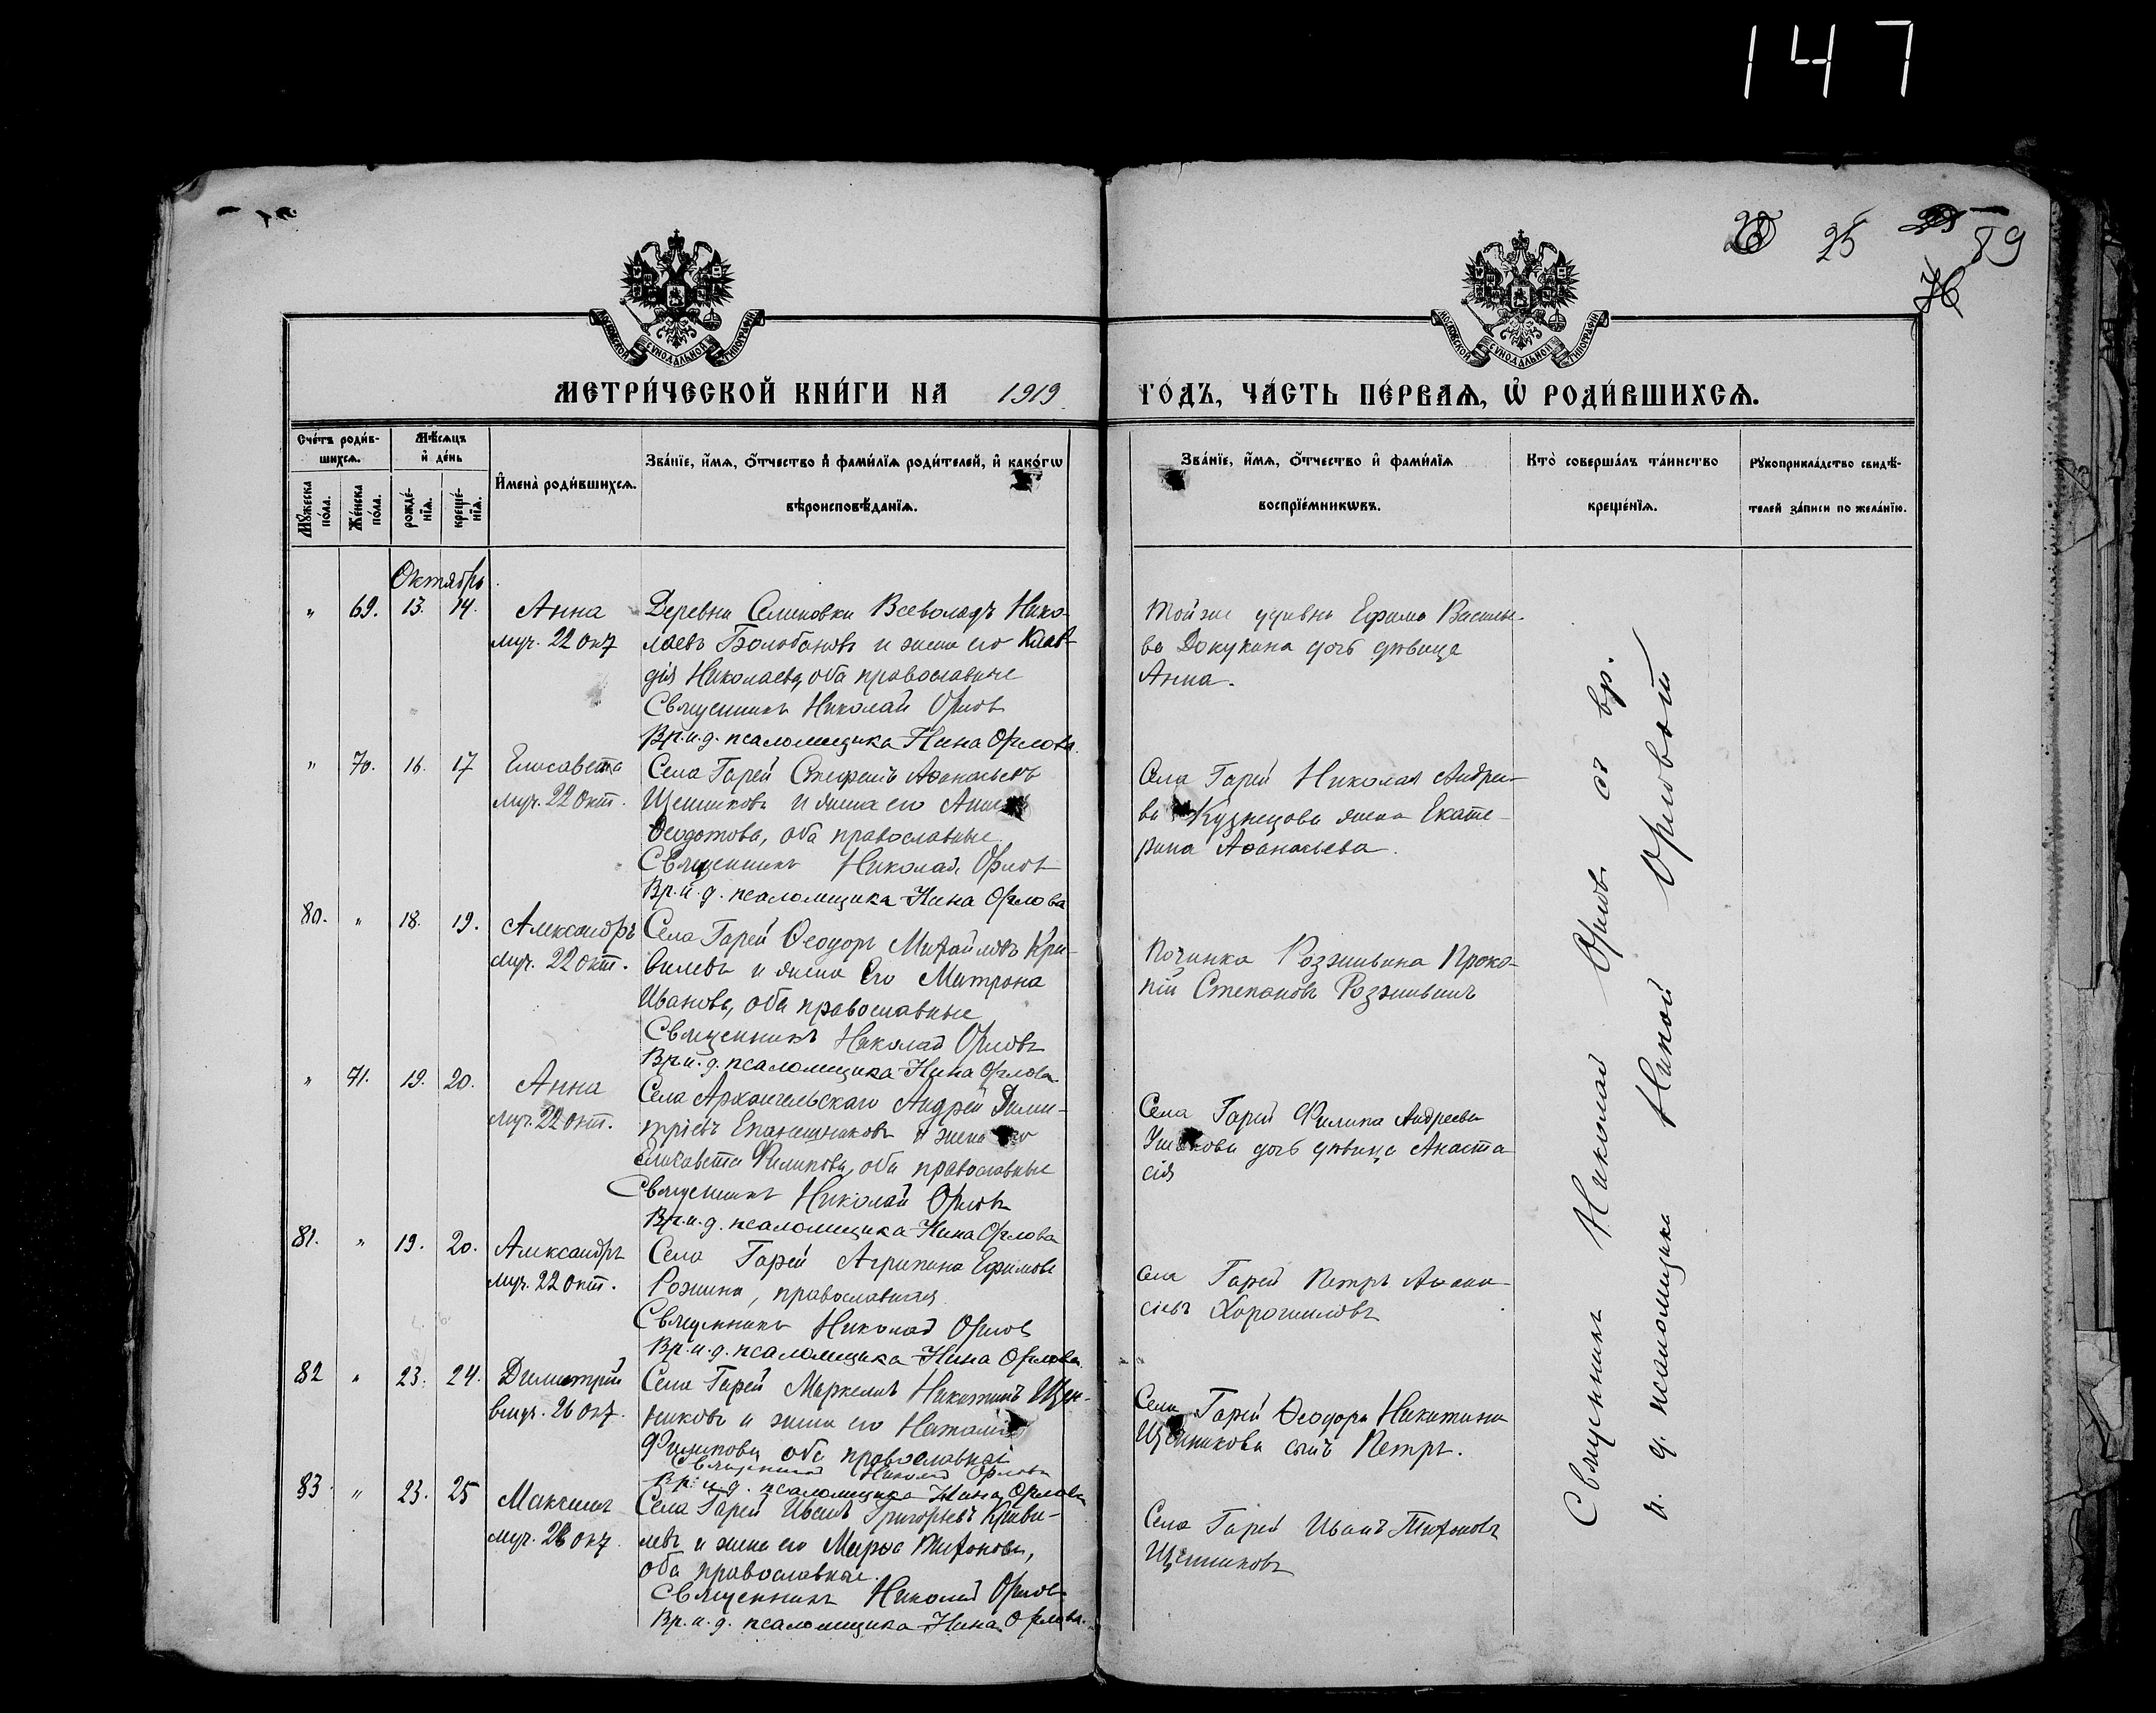 147
25
89
МОСКОВСКОЙ СѴНОДАЛЬНОЙ ТИПОГРАФІИ
МОСКОВСКОЙ СѴНОДАЛЬНОЙ ТИПОГРАФІИ
МЕТРИ́ЧЕСКОЙ КНИ́ГИ НА 1919 ГО́ДЪ, ЧА́СТЬ ПЕ́РВАѦ, Ѽ РОДИ́ВШИХСѦ.
Сче́тъ роди́в-
шихсѧ.
Мꙋ́жеска по́ла.
Же́нска по́ла.
Мѣ́сѧцъ
и҆ де́нь
рожде́-
нїѧ.
креще́-
нїѧ.
И҆мена̀ роди́вшихсѧ.
Зва́нїе, и҆́мѧ, ѻ҆́тчество и҆ фами́лїѧ роди́телей, и҆ како́гѡ
вѣроисповѣ́данїѧ.
Зва́нїе, и҆́мѧ, ѻ҆́тчество и҆ фами́лїѧ
воспрїе́мникѡвъ.
Кто̀ соверша́лъ та́инство
креще́нїѧ.
Рꙋкоприкла́дство свидѣ́-
телей за́писи по жела́нїю.
Октябрь
" 69. 13. 14. Анна
муч. 22 окт
Деревни Семиовки Всеволодъ Нико-
лаевъ Болобановъ и жена его Клав-
дія Николаева, оба православные
Священникъ Николай Орловъ
Вр.и.д. псаломщика Нина Орлова.
Той же деревни Ефима Василье-
ва Докукина дочь дѣвица
Анна.
" 70. 16. 17 Елисавета
муч. 22 окт.
Села Гарей Стефанъ Аѳанасьевъ
Щенниковъ и жена его Анна
Ѳеодотова, оба православные
Священникъ Николай Орловъ
Вр.и.д. псаломщика Нина Орлова
Села Гарей Николая Андрее-
ва Кузнецова жена Екате-
рина Аѳанасьева.
80. " 18. 19. Александръ
муч. 22 окт.
Села Гарей Ѳеодоръ Михайловъ Кри-
вилевъ и жена его Матрона
Иванова, оба православные
Священникъ Николай Орловъ
Вр.и.д. псаломщика Нина Орлова
Починка Розживина Проко-
пій Степановъ Розживинъ
" 71. 19. 20. Анна
муч. 22 окт.
Села Архангельскаго Андрей Дими-
тріевъ Епанешниковъ и жена его
Елисавета Филипова, оба православные
Священникъ Николай Орловъ
Вр.и.д. псаломщика Нина Орлова
Села Гарей Филипа Андреева
Ушакова дочь дѣвица Анаста-
сія
81. " 19. 20. Александръ
муч. 22 окт.
Села Гарей Агрипина Ефимова
Рожина, православная
Священникъ Николай Орловъ
Вр.и.д. псаломщика Нина Орлова.
Села Гарей Петръ
Хорошиловъ
82 " 23. 24. Димитрій
вмуч. 26 окт.
Села Гарей Маркелъ Никитинъ Щен-
никовъ и жена его Наталія
Филипова, оба православные
Священникъ Николай Орловъ
Вр.и.д. псаломщика Нина Орлова
Села Гарей Ѳеодора Никитина
Щенникова сынъ Петръ.
83. " 23. 25 Максимъ
муч. 28 окт.
Села Гарей Иванъ Григорьевъ Криви-
левъ и жена его Марѳа Тихонова,
оба православные.
Священникъ Николай Орловъ
Вр.и.д. псаломщика Нина Орлова.
Села Гарей Иванъ Тихоновъ
Щенниковъ
Священникъ Николай Орловъ съ вр.
и. д. псаломщика Ниной Орловой